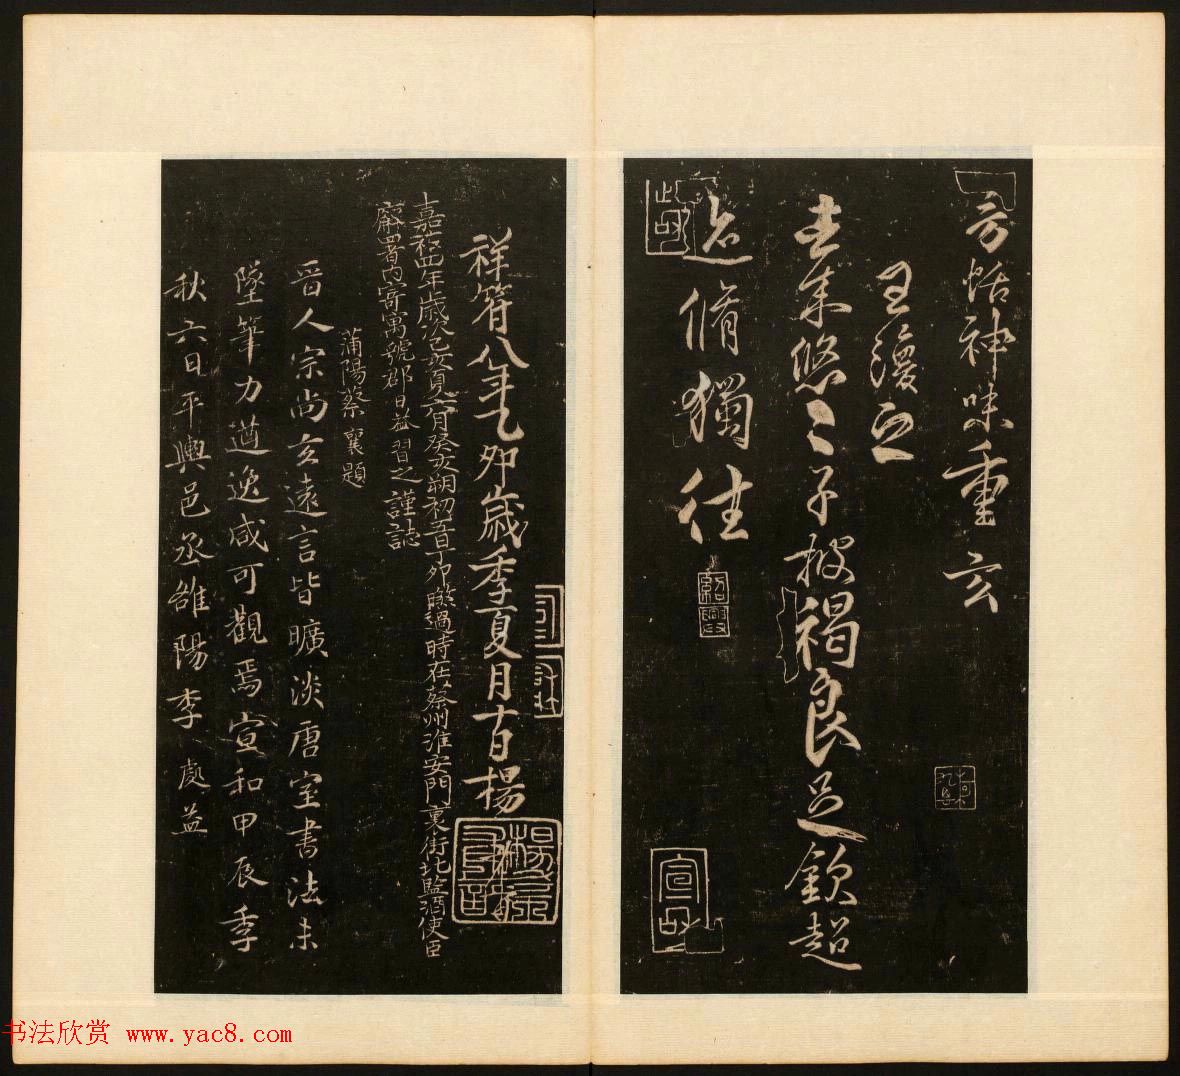 方恬神味重玄
王濩之
去来悠〻子披褐良足欽超
迹脩獨往
紹興
祥符八年乙卯歲季夏月十日楊
嘉祐四年歲次己亥夏六月癸亥朔初五日丁卯曝過時在蔡州淮安門裏街北監酒使臣
廨署內寄寓虢郡日益習之謹誌
蒲陽蔡襄題
晉人宗尚玄遠言皆曠淡唐室書法未
墜筆力遒逸咸可觀焉宣和甲辰季
秋六日平輿邑丞雒陽李處益
书法欣赏 www.yac8.com